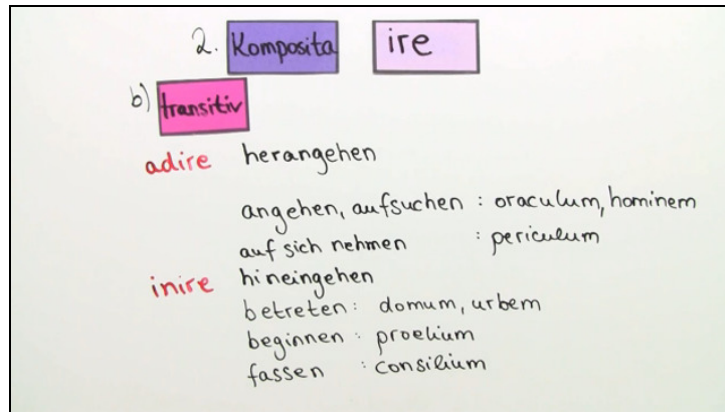 2. Komposita ire
b) transitiv
adire herangehen
angehen, aufsuchen : oraculum, hominem
auf sich nehmen : periculum
inire hineingehen
betreten : domum, urbem
beginnen : proelium
fassen : consilium